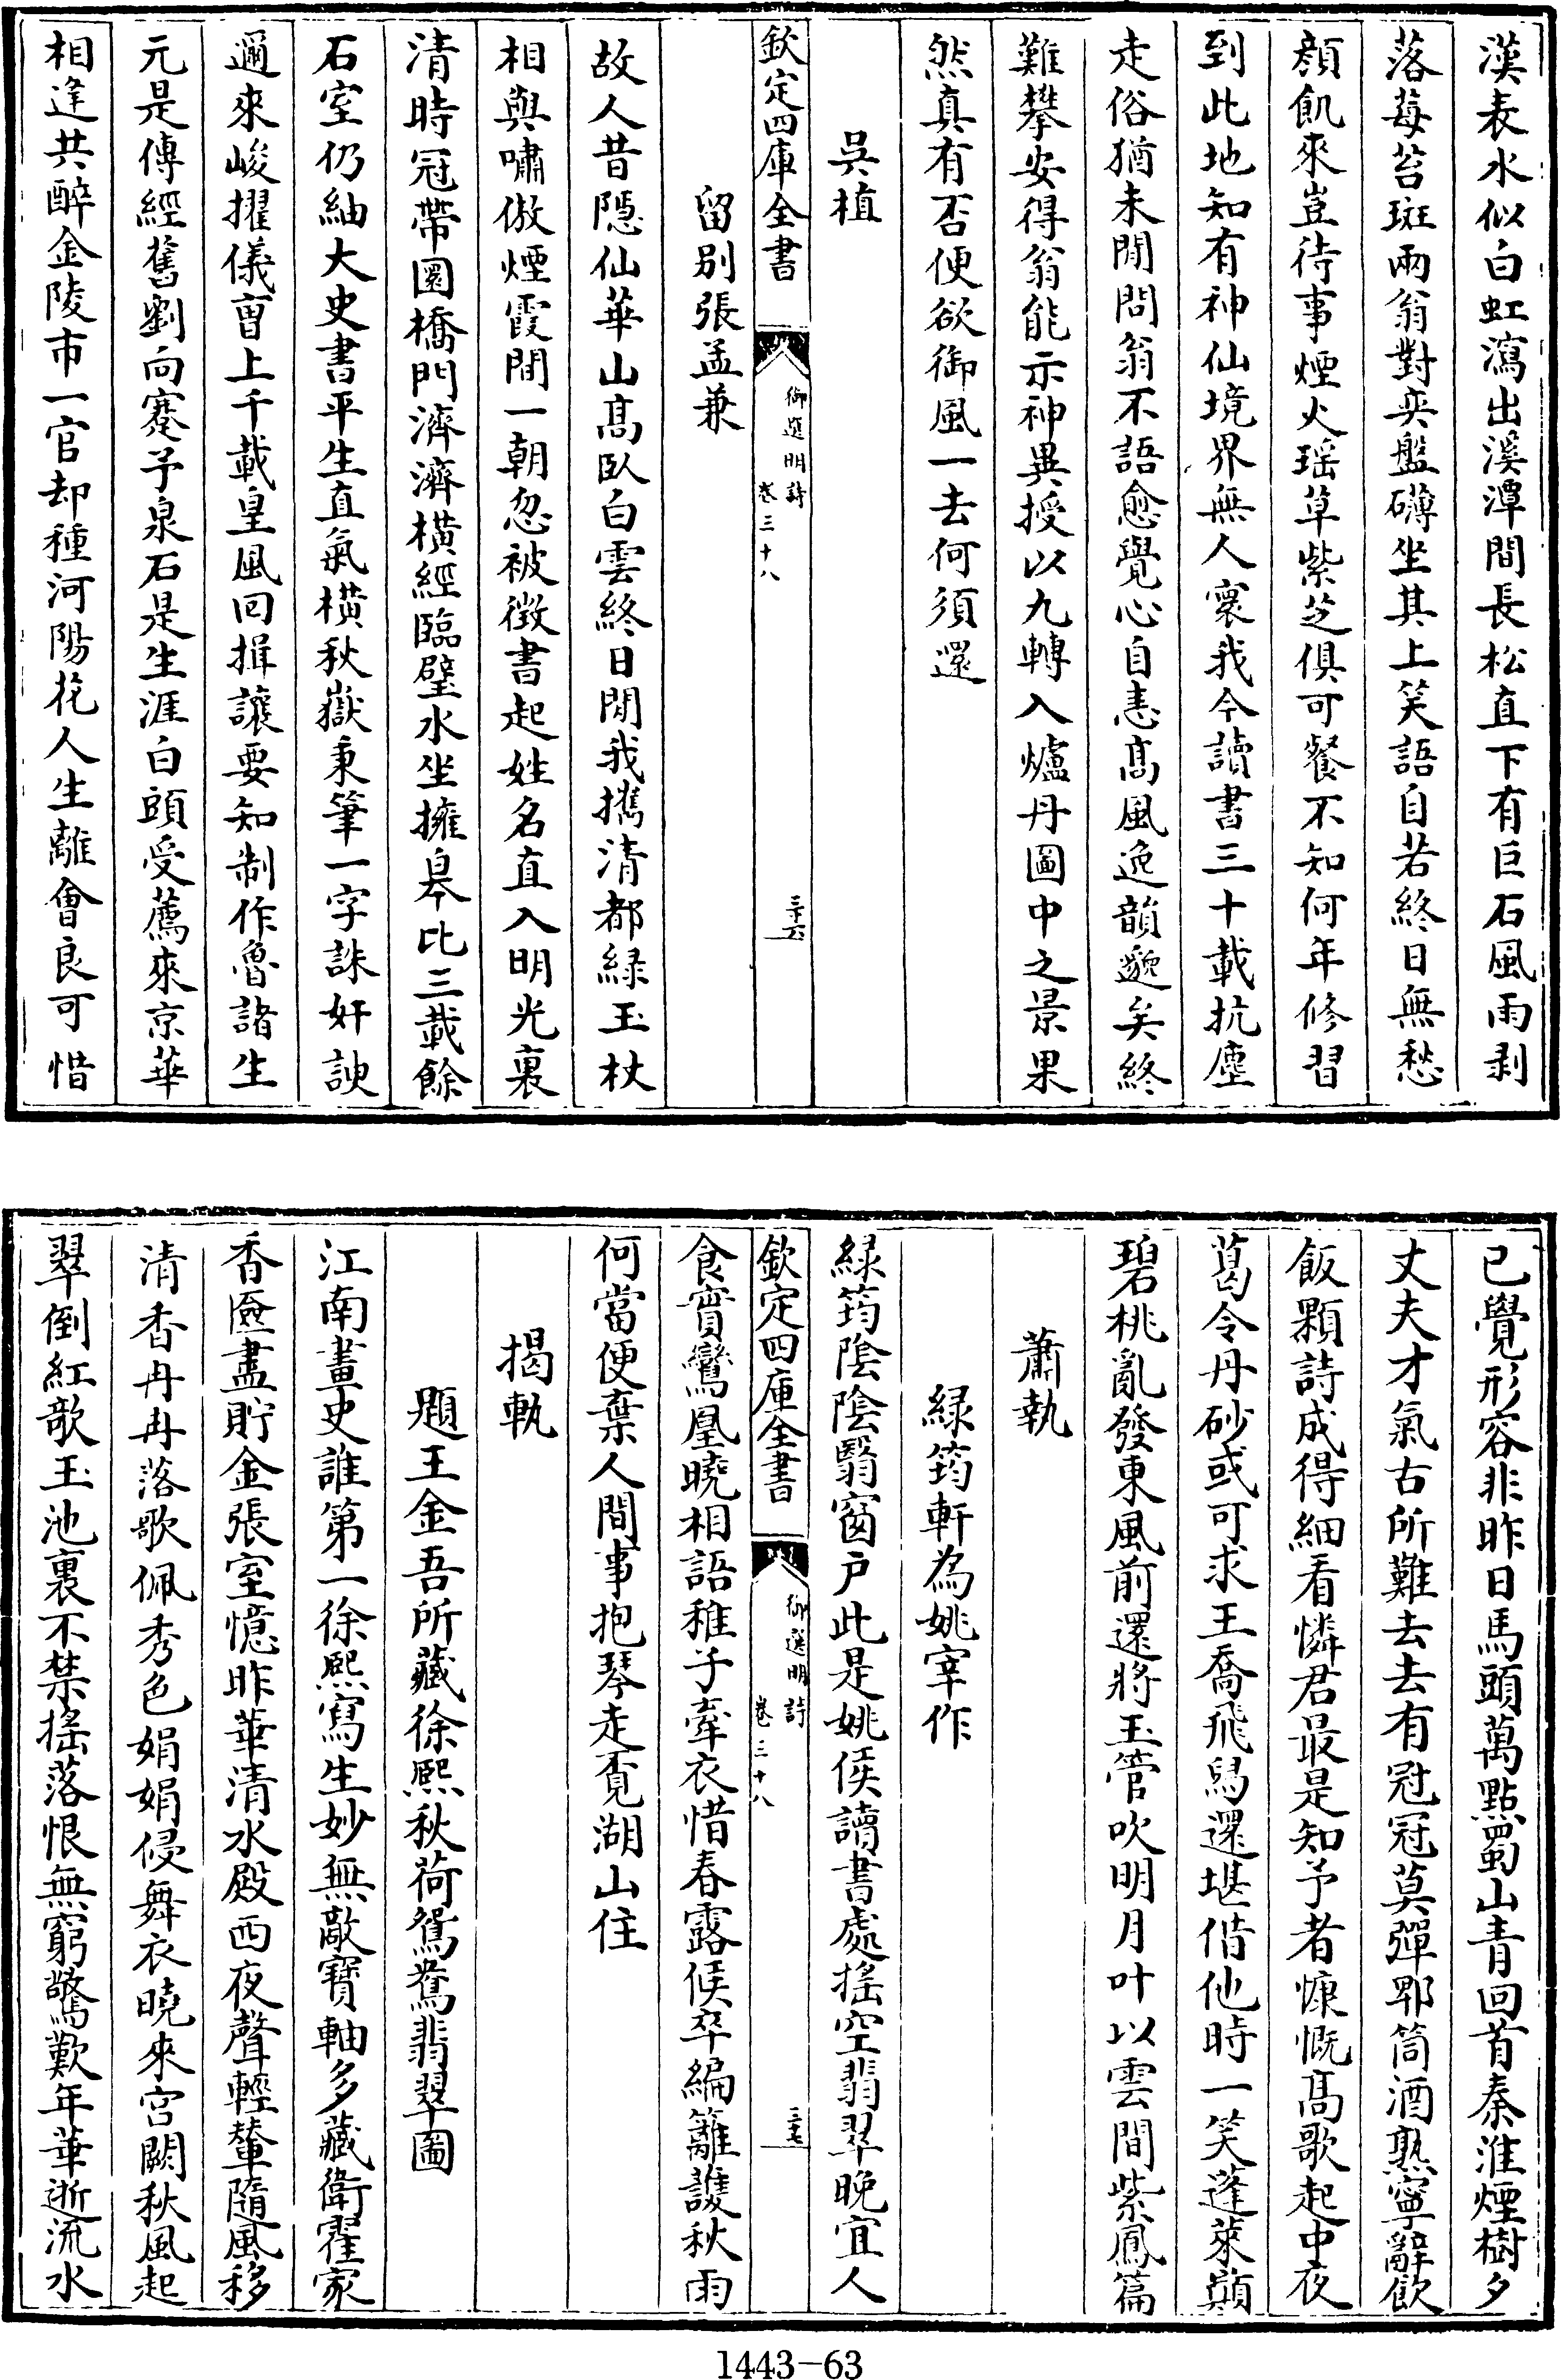 漢表水似白虹瀉出溪潭間長松直下有巨石風雨剥
落莓苔斑兩翁對奕盤礴坐其上笑語自若終日無愁
顔飢來豈待事煙火瑶草紫芝俱可餐不知何年修習
到此地知有神仙境界無人寰我今讀書三十載抗塵
走俗猶未閒問翁不語愈覺心自恚高風逸韻邈矣終
難攀安得翁能示神異授以九轉入爐丹圖中之景果
然真有否便欲御風一去何須還
吳植
欽定四庫全書
御選明詩
卷三十八
三十六
留别張孟兼
故人昔隱仙華山高臥白雲終日閒我攜清都緑玉杖
相與嘯傲煙霞間一朝忽被徵書起姓名直入明光裏
清時冠帶圜橋門濟濟横經臨璧水坐擁臯比三載餘
石室仍紬大史書平生直氣横秋嶽秉筆一字誅奸諛
邇來峻擢儀曹上千載皇風回揖讓要知制作魯諸生
元是傳經舊劉向蹇予泉石是生涯白頭受薦來京華
相逢共醉金陵市一官却種河陽花人生離會良可惜
已覺形容非昨日馬頭萬點蜀山青回首秦淮煙樹夕
丈夫才氣古所難去去有冠冠莫彈郫筒酒熟寧辭飲
飯顆詩成得細看憐君最是知予者慷慨高歌起中夜
葛令丹砂或可求王喬飛舄還堪借他時一笑蓬萊巔
碧桃亂發東風前還將玉管吹明月叶以雲間紫鳳篇
蕭執
緑筠軒為姚宰作
緑筠陰陰翳窗户此是姚侯讀書處揺空翡翠晚宜人
欽定四庫全書
御選明詩
卷三十八
三十七
食實鸞凰曉相語稚子牽衣惜春露候卒編籬護秋雨
何當便棄人間事抱琴走覔湖山住
揭軌
題王金吾所藏徐熙秋荷鴛鴦翡翠圖
江南畫史誰第一徐熙寫生妙無敵寶軸多藏衛霍家
香匳盡貯金張室憶昨華清水殿西夜聲輕輦隨風移
清香冉冉落歌佩秀色娟娟侵舞衣曉來宫闕秋風起
翠倒紅欹玉池裏不禁揺落恨無窮驚歎年華逝流水
1443-63